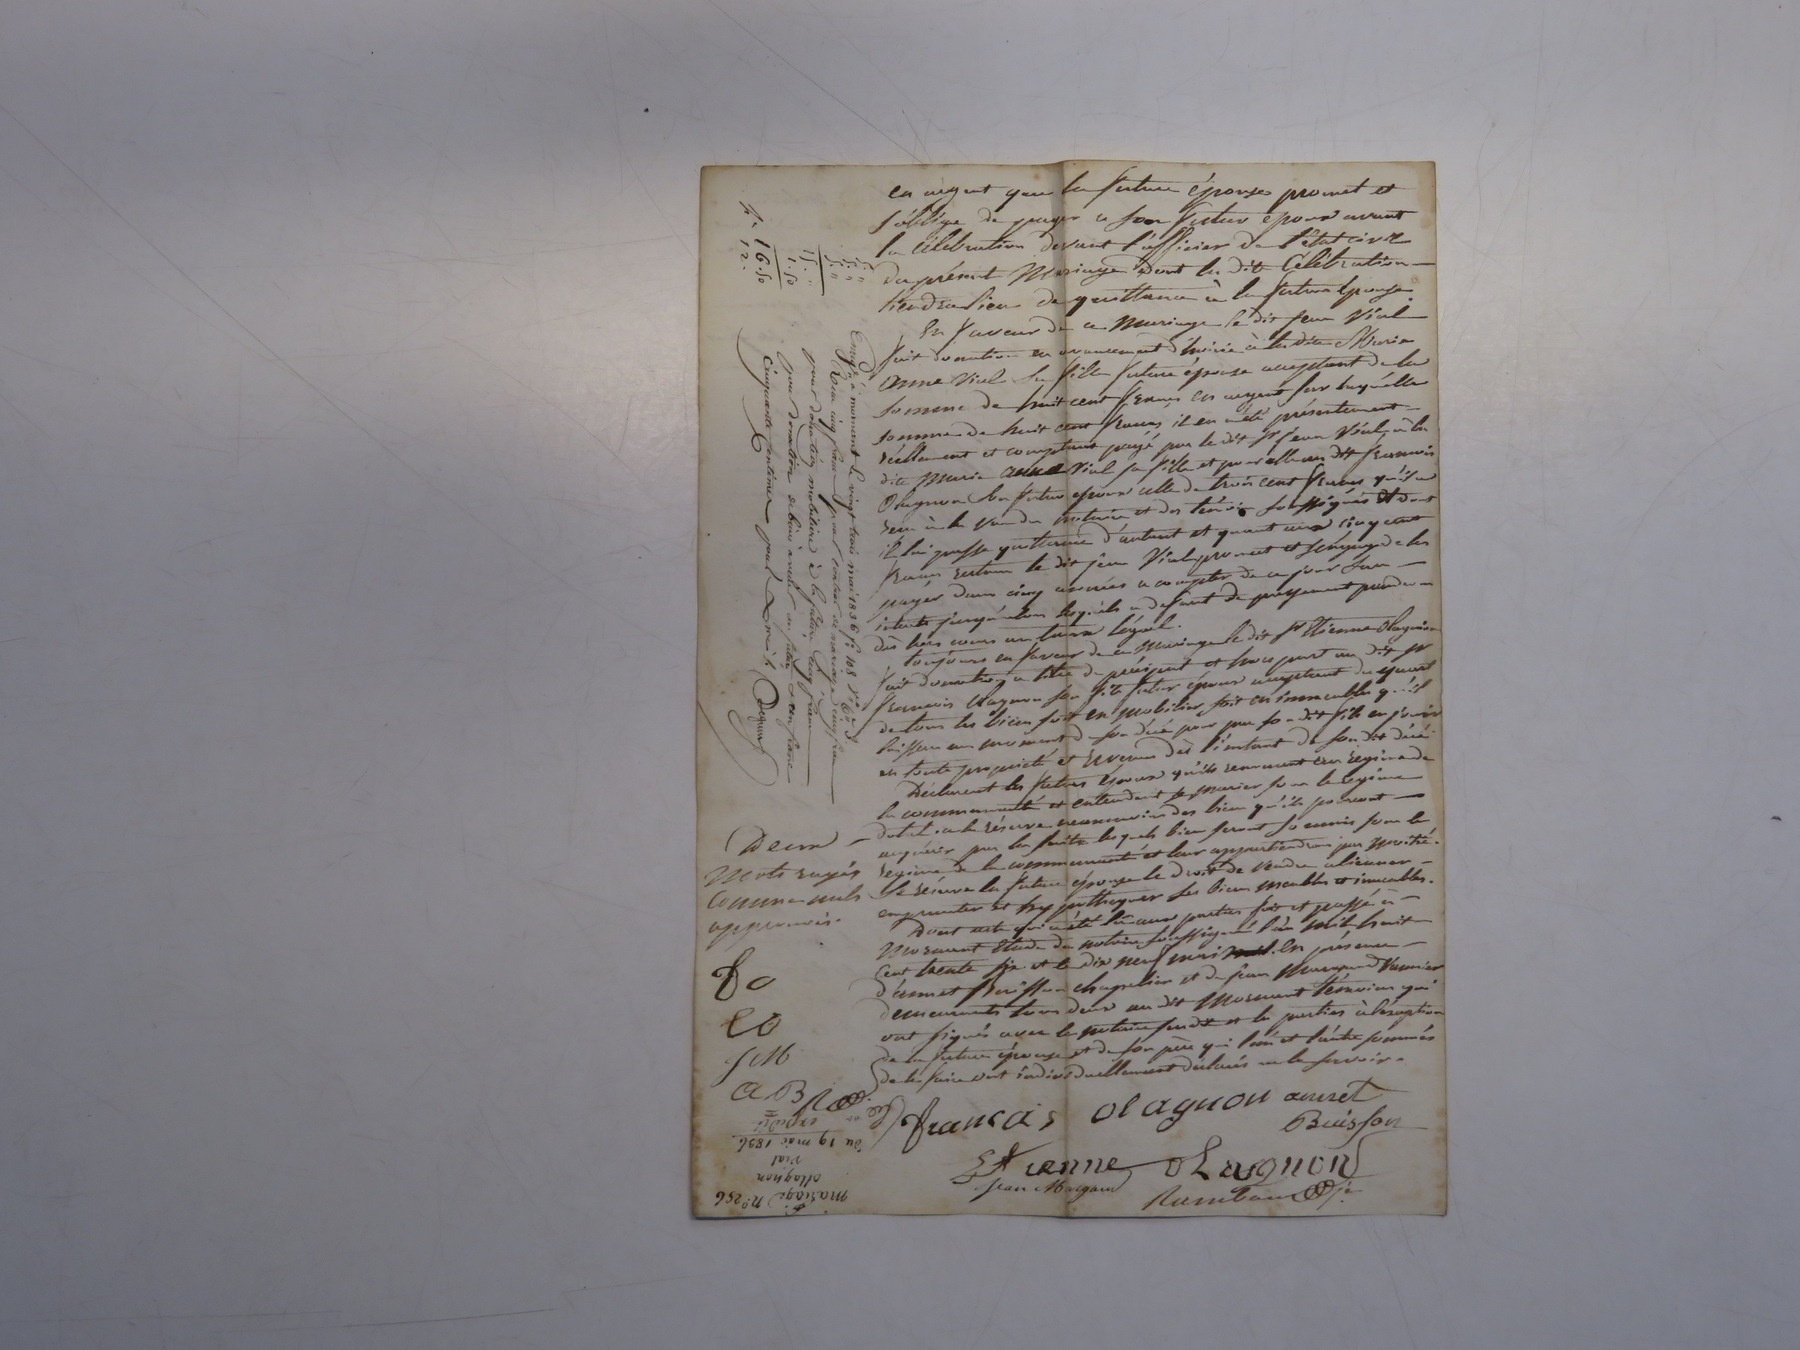 en argent que la future épouse promet et
s'oblige de payer a son futur epoux avant
la Célébration devant l'officier de l'état civil
du présent Mariage dont la dite Célébration
tiendra lieu de quittance à la future épouse.
En faveur de ce Mariage le dit jean Vial
fait donation en avancement d'hoirie à la dite Marie
anne Vial sa fille future épouse acceptant de la
somme de huit cent francs en argent sur laquelle
somme de huit cent francs, il en a été présentement
réellement et comptant payé par le dit Sr jean Vial à la
dite Marie anne Vial sa fille et pour elle au dit francois
Olagnon son futur epoux celle de trois cent francs qu'il a
recu à la vue du notaire et des témoins soussignés et dont
il lui passe quittance d'autant et quant aux cinq cent
francs restans le dit jean Vial promet et s'engage de les
payer dans cinq années a compter de ce jour sans
interets jusqu'alors lesquels a defaut de payement prendront
dès lors cours au taux légal.
toujours en faveur de ce Mariage le dit Sr Etienne Olagnon
fait donation a titre de préciput et hors part au dit Sr
francois Olagnon son fils futur époux acceptant du quart
de tous les biens soit en mobilier soit en immeubles qu'il
laissera au moment de son décé pour par son dit fils en jouir
en toute propriété et revenu dès l'instant de son dit décé
Déclarent les futurs époux qu'ils renoncent au régime de
la communauté et entendent se marier sous le régime
dotal a la réserve neanmoins des biens qu'ils pourront
acquérir par la suite lesquels biens seront soumis sous le
régime de la communauté et leur appartiendront par moitié.
Se réserve la future épouse le droit de vendre aliener
emprunter et hypothequer ses biens meubles et immeubles.
Dont acte qui a été lu aux parties fait et passé à
Mornant Etude du notaire soussigné l'an mil huit
cent trente six et le dix neuf mai. En présence
d'annet Buisson chapelier et de jean Margand Vannier
demeurants tous deux au dit Mornant témoins qui
ont signés avec le notaire susdit et les parties à l'exception
de la future épouse et de son père qui l'un et l'autre sommés
de le faire ont individuellement déclarés ne le savoir.
françois olagnon annet
Buisson
Etienne olagnon
Jean Margand
Deux
Mots rayés
comme nuls
approuvés.
fo
EO
JM
AB
5 "
5 "
5 "
15 "
1.50
16.50
12.
Enregé à mornant le vingt trois mai 1836 fo 108
Reçu cinq francs pour contrat de mariage, cinq francs
pour donation mobilière à la future, cinq francs
pour donation de biens à venir au futur et un franc
cinquante centimes pour
Mariage No 256
olagnon
Vial
du 19 mai 1836
expédié